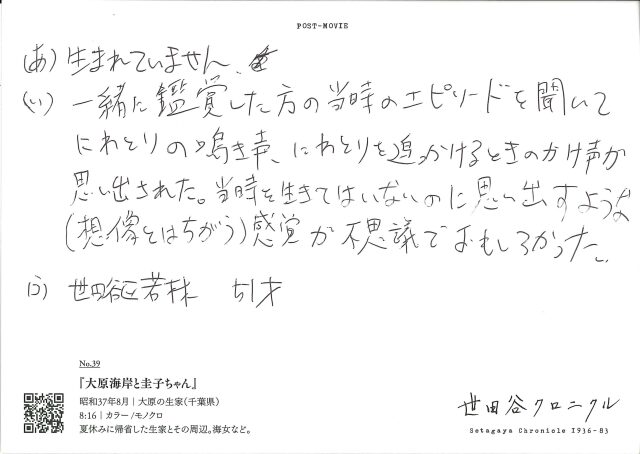 POST-MOVIE
(あ) 生まれていません、
(い) 一緒に鑑賞した方の当時のエピソードを聞いて
にわとりの鳴き声、にわとりを追っかけるときのかけ声が
思い出された。当時を生きてはいないのに思い出すような
(想像とはちがう)感覚が不思議でおもしろかった。
(う) 世田谷区若林
No.39
『大原海岸と圭子ちゃん』
昭和37年8月|大原の生家(千葉県)
8:16|カラー/モノクロ
夏休みに帰省した生家とその周辺。海女など。
世田谷クロニクル
Setagaya Chronicle 1936-83